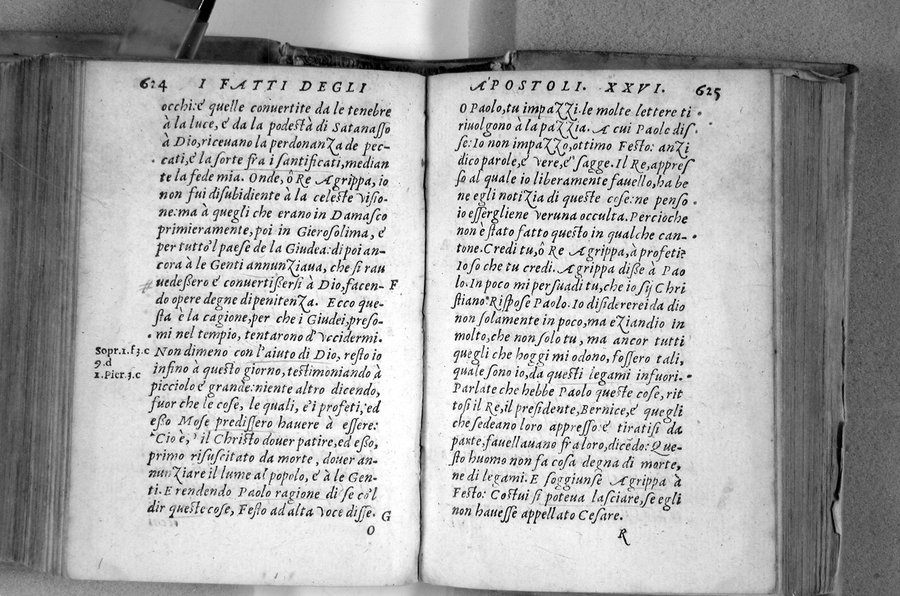 624 I FATTI DEGLI
occhi:e' quelle conuertite da le tenebre
à la luce, e' da la podestà di Satanasso
à Dio, riceuano la perdonanza de pec-
cati, e' la sorte fra i santificati, median
te la fede mia. Onde, ô Re Agrippa, io
non fui disubidiente à la celeste visio-
ne: ma à quegli che erano in Damasco
primieramente, poi in Gierosolima, e'
per tutto'l paese de la Giudea: di poi an-
cora à le Genti annunziaua, che si rau
uedessero e' conuertissersi à Dio, facen- F
do opere degne di penitenza. Ecco que-
sta è la cagione, per che i Giudei, preso-
mi nel tempio, tentarono d'vccidermi.
Sopr.1.f3.c Non dimeno con l'aiuto di Dio, resto io
9.d infino a questo giorno, testimoniando à
1.Pier.3.c picciolo e' grande: niente altro dicendo,
fuor che le cose, le quali, e' i profeti, ed
esso Mose predissero hauere à essere:
Cio è, il Christo douer patire, ed esso,
primo risuscitato da morte, douer an-
nunziare il lume al popolo, e' à le Gen-
ti. E rendendo Paolo ragione di se co'l
dir queste cose, Festo ad alta voce disse. G
O
APOSTOLI. XXVI. 625
O Paolo, tu impazzi. le molte lettere ti
riuolgono à la pazzia. A cui Paolo dis-
se: Io non impazzo, ottimo Festo: anzi
dico parole, e' vere, e' sagge. Il Re, appres
so al quale io liberamente fauello, ha be
ne egli notizia di queste cose: ne penso
io essergliene veruna occulta. Percioche
non è stato fatto questo in qualche can-
tone. Credi tu, ô Re Agrippa, à profeti?
Io so che tu credi. Agrippa disse à Pao
lo. In poco mi persuadi tu, che io sij Chri
stiano? Rispose Paolo. Io disidererei da dio
non solamente in poco, ma eziandio in
molto, che non solo tu, ma ancor tutti
quegli che hoggi mi odono, fossero tali,
quale sono io, da questi legami infuori.
Parlate che hebbe Paolo queste cose, rit
tosi il Re, il presidente, Bernice, e' quegli
che sedeano loro appresso: e' tiratisi da
parte, fauellauano fra loro, dicẽdo: Que-
sto huomo non fa cosa degna di morte,
ne di legami. E soggiunse Agrippa à
Festo: Costui si poteua lasciare, se egli
non hauesse appellato Cesare.
R